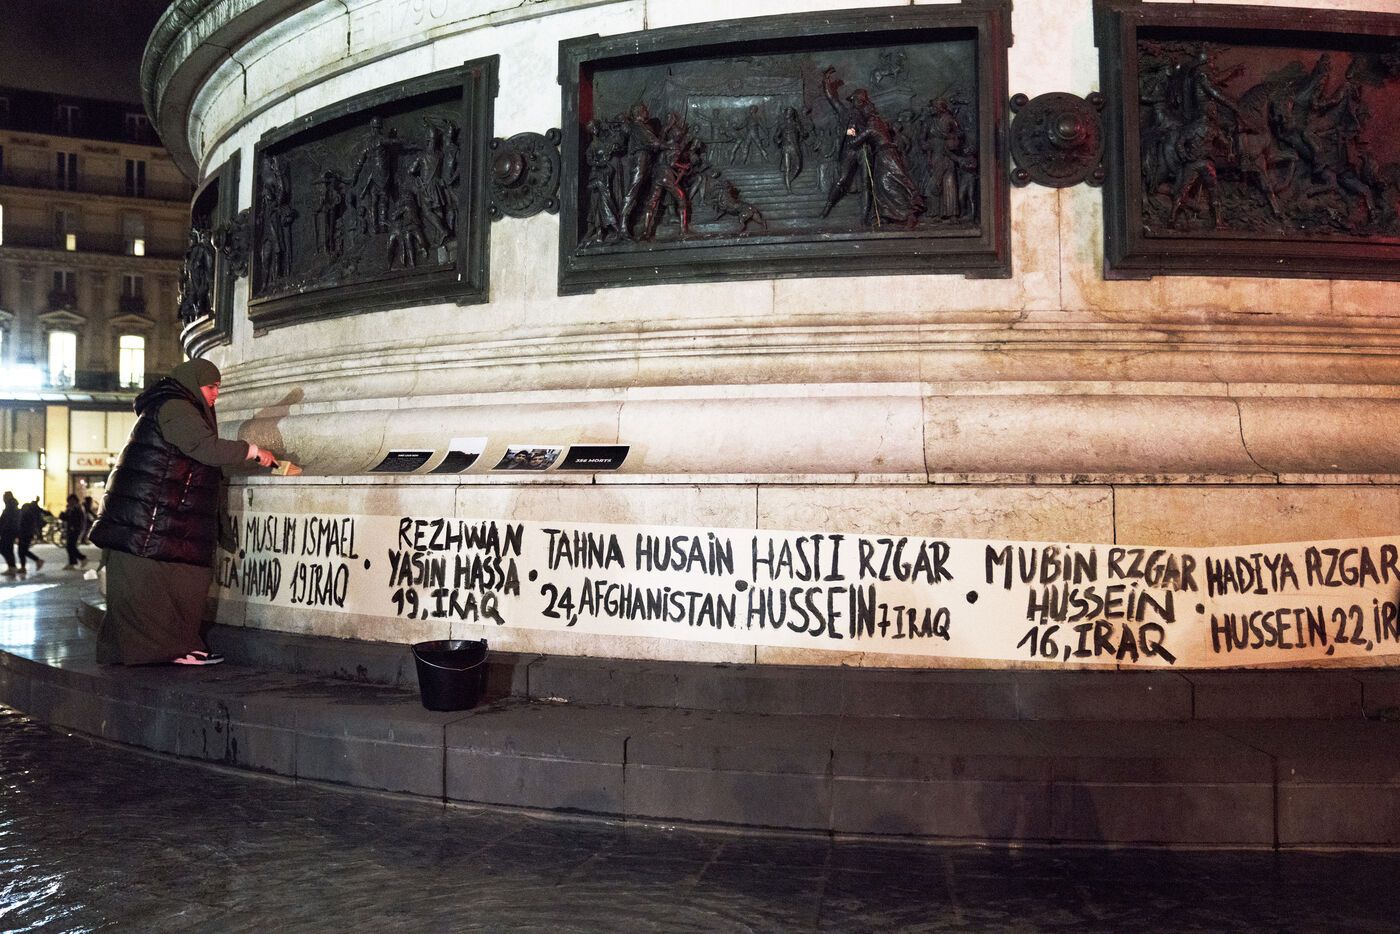 1790
CAM
356 MORTS
MUSLIM ISMAEL
HAMAD 19 IRAQ
REZHWAN
YASIN HASSA
19, IRAQ
TAHNA HUSAIN
24, AFGHANISTAN
HASTI RZGAR
HUSSEIN 7 IRAQ
MUBIN RZGAR
HUSSEIN
16, IRAQ
HADIYA RZGAR
HUSSEIN, 22, IR